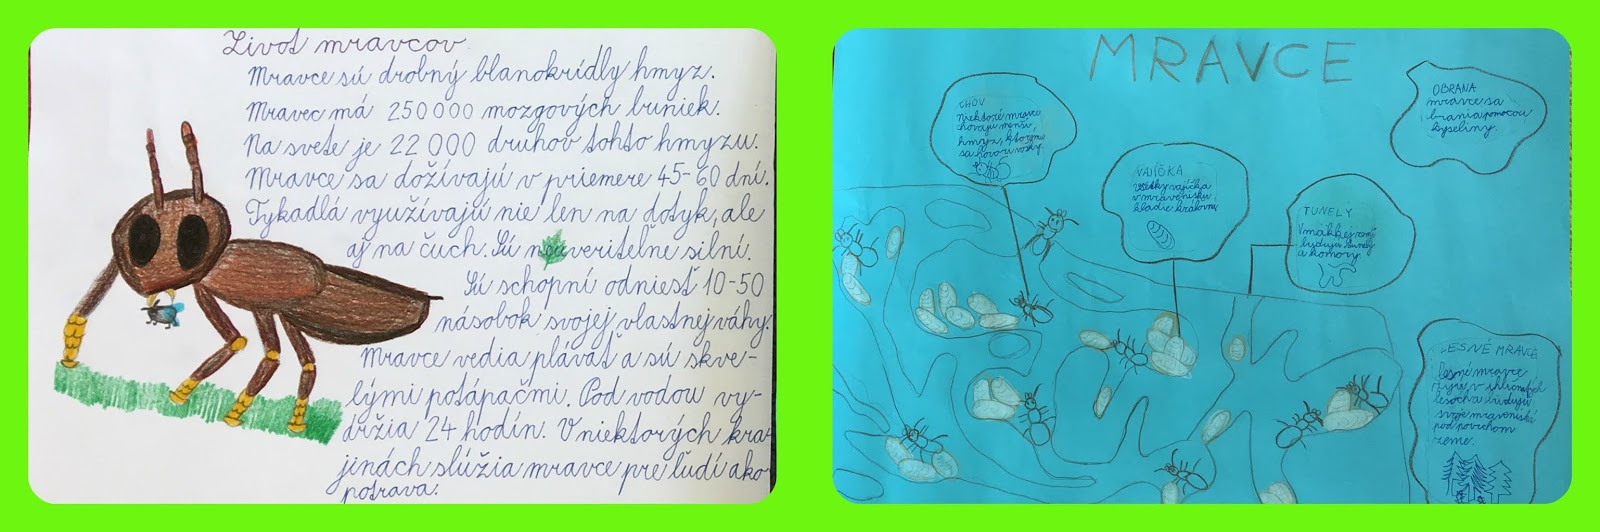 Život mravcov
Mravce sú drobný blanokrídly hmyz.
Mravec má 250 000 mozgových buniek.
Na svete je 22 000 druhov tohto hmyzu.
Mravce sa dožívajú v priemere 45-60 dní.
Tykadlá využívajú nie len na dotyk, ale
aj na čuch. Sú neuveriteľne silní.
Sú schopní odniesť 10-50
násobok svojej vlastnej váhy.
Mravce vedia plávať a sú skve-
lými potápačmi. Pod vodou vy-
držia 24 hodín. V niektorých kra-
jinách slúžia mravce pre ľudí ako
potrava.
MRAVCE
CHOV
Niektoré mravce
chovajú menší
hmyz, ktorému
sa hovorí vošky.
VAJÍČKA
všetky vajíčka
v mravenisku
kladie kráľovná
TUNELY
V mäkkej zemi
budujú tunely
a komory.
OBRANA
mravce sa
bránia pomocou
kyseliny.
LESNÉ MRAVCE
lesné mravce
žijú v ihličnatých
lesoch a budujú
svoje mraveniská
pod povrchom
zeme.